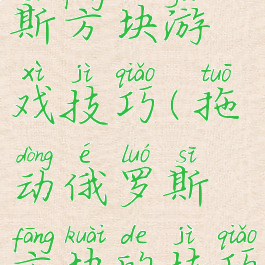 斯方块游
xì jì qiǎo tuō
戏技巧(拖
dòng é luó sī
动俄罗斯
fāng kuài de jì qiǎo
方块的技巧